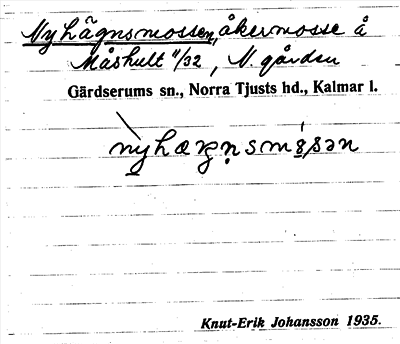 Nyhägnsmossen, åkermosse å
Måshult 11/32, N. gården
Gärdserums sn., Norra Tjusts hd., Kalmar l.
Knut-Erik Johansson 1935.